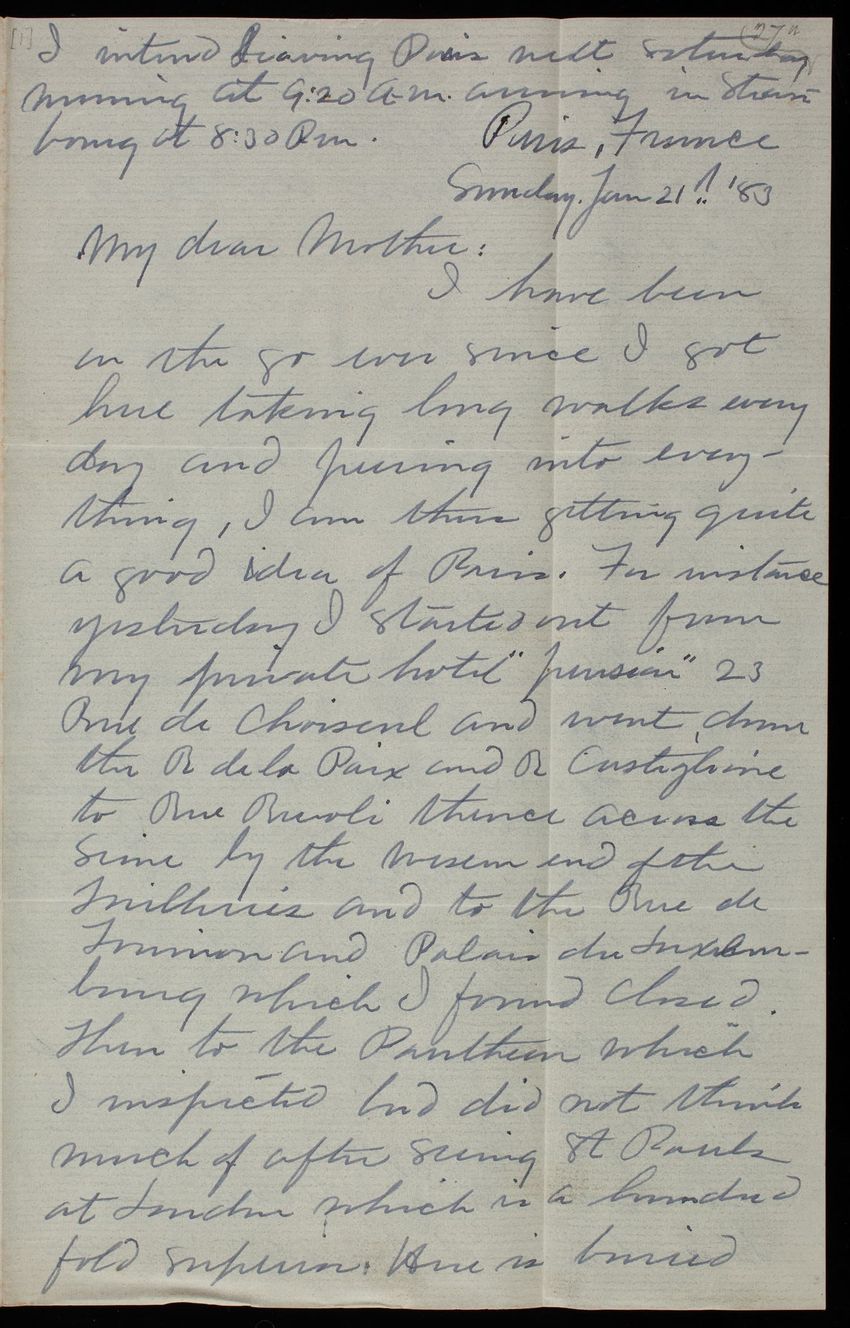 [1] 27
I intend leaving Paris next Saturday
morning at 9:20 A.m. arriving in Stras-
bourg at 8:30 P.m.
Paris, France
Sunday. Jan 21st '83
My dear Mother:
I have been
on the go ever since I got
here taking long walks every
day and peering into every-
thing, I am thus getting quite
a good idea of Paris. For instance
yesterday I started out from
my private hotel "pension" 23
Rue de Choiseul and went down
the R de la Paix and R Castiglione
to Rue Rivoli thence across the
Seine by the western end of the
Tuilleries and to the Rue de
Tournon and Palais du Luxem-
bourg which I found closed.
Then to the Pantheon which
I inspected but did not think
much of after seeing St Pauls
at London which is a hundred
fold superior. Here is buried